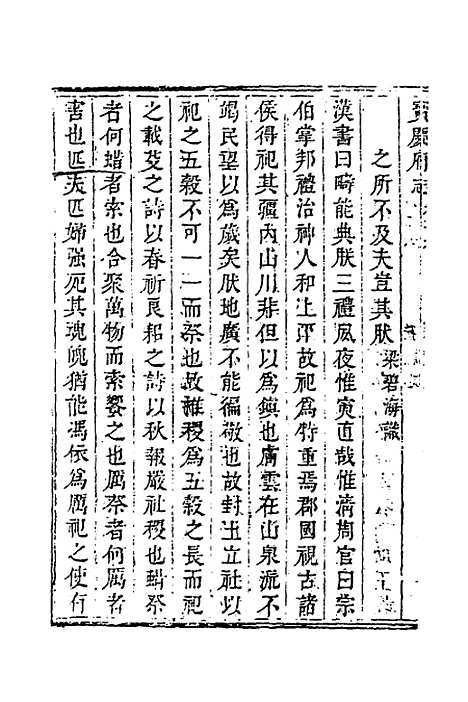 寶慶府志
之所不及夫豈其朕梁碧海識
漢書曰疇能典朕三禮夙夜惟寅直哉惟清周官曰宗
伯掌邦禮治神人和上下故祀為特重焉郡國視古諸
侯得祀其疆內山川非但以為鎮也膚雲在山泉流不
竭民望以為歲矣朕地廣不能徧敬也故封土立社以
祀之五穀不可一一而祭也故雖稷為五穀之長而祀
之載芟之詩以春祈良耜之詩以秋報嚴社稷也蜡祭
者何蜡者索也合聚萬物而索饗之也厲祭者何厲者
害也匹夫匹婦强死其魂魄猶能馮依為厲祀之使有